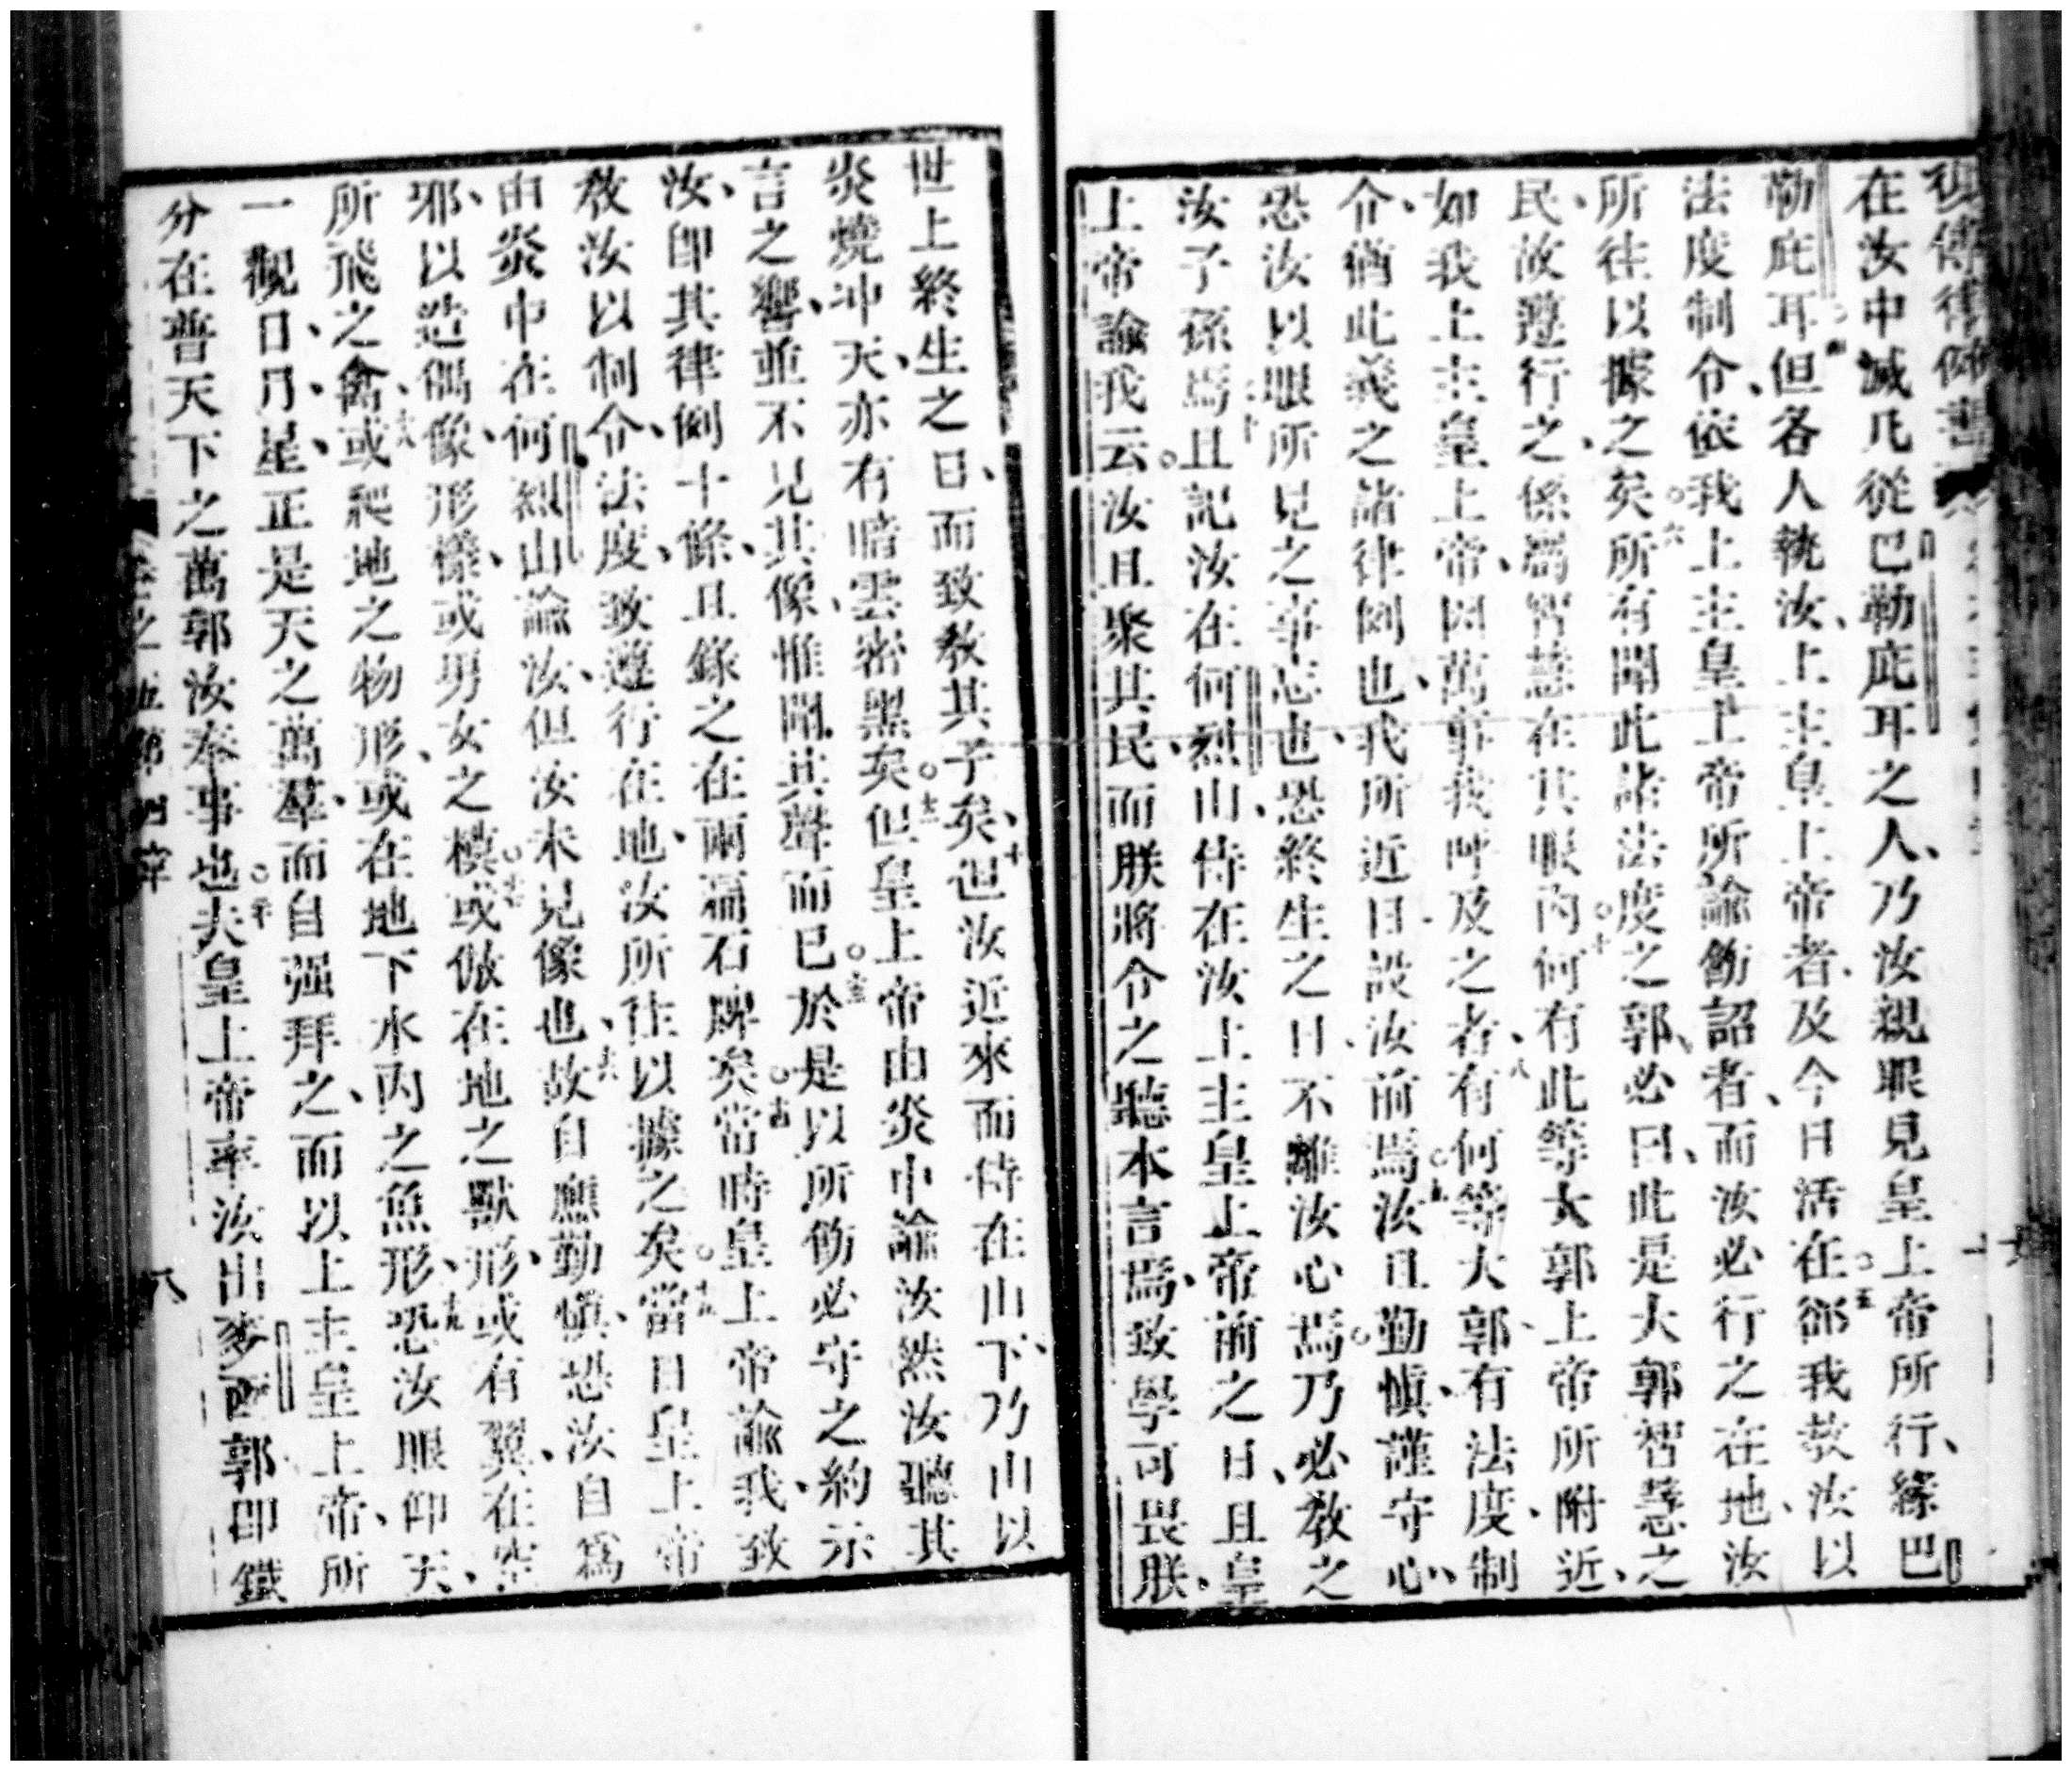 復傳律例書
在汝中滅凡從巴勒庇耳之人、乃汝親眼見皇上帝所行、緣巴
勒庇耳。四但各人執汝上主皇上帝者、及今日活在。五卻我教汝以
法度制令、依我上主皇上帝所諭飭詔者、而汝必行之在地、汝
所往以據之矣。六所有聞此諸法度之郭、必曰、此是大郭智慧之
民、故遵行之、係爲智慧在其眼內。七何有此等大郭、上帝所附近、
如我上主皇上帝、因萬事我呼及之者、八有何等大郭、有法度、制
令、猶此義之諸律例也、我所近日設汝前焉。九汝且勤慎、謹守心、
恐汝以眼所見之事忘也、恐終生之日、不離汝心焉。乃必教之
汝子孫焉。十且記汝在何烈山、侍在汝上主皇上帝前之日、且皇
上帝諭我云。云汝且聚其民、而朕將令之聽本言焉、致學可畏朕、
世上終生之日、而致教其子矣、十一但汝近來而侍在山下、乃山以
炎燒冲天、亦有暗雲密黑矣。十二但皇上帝由炎中諭汝、然汝聽其
言之響、並不見其像、惟聞其聲而已。十三於是以所飭必守之約示
汝、卽其律例十條、且錄之在兩扁石牌矣。十四當時皇上帝諭我、致
教汝以制令、法度、致遵行在地、汝所往以據之矣。十五當日皇上帝
由炎中在何烈山諭汝、但汝未見像也、十六故自應勤慎、恐汝自爲
邪、以造偶像、形樣、或男女之模。十七或倣在地之獸形、或有翼、在空
所飛之禽、十八或爬地之物形、或在地下水內之魚形、十九恐汝眼仰天、
一觀日、月、星、正是天之萬羣、而自强拜之、而以上主皇上帝、所
分在普天下之萬郭、汝奉事也。二十夫皇上帝率汝出麥西郭、卽鐵
卷之五 第四章 八